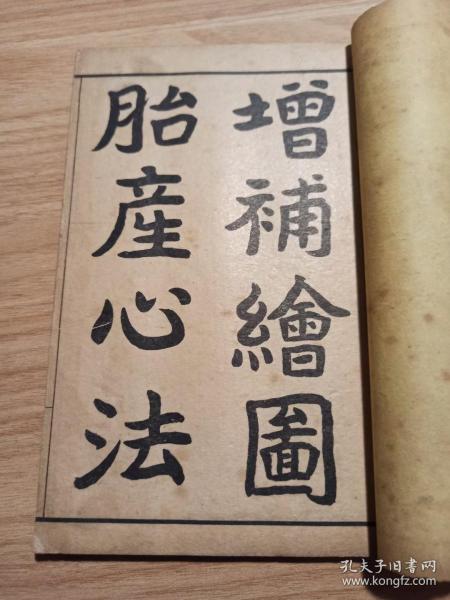 增補繪圖
胎産心法
孔夫子旧书网
www.kongfz.com